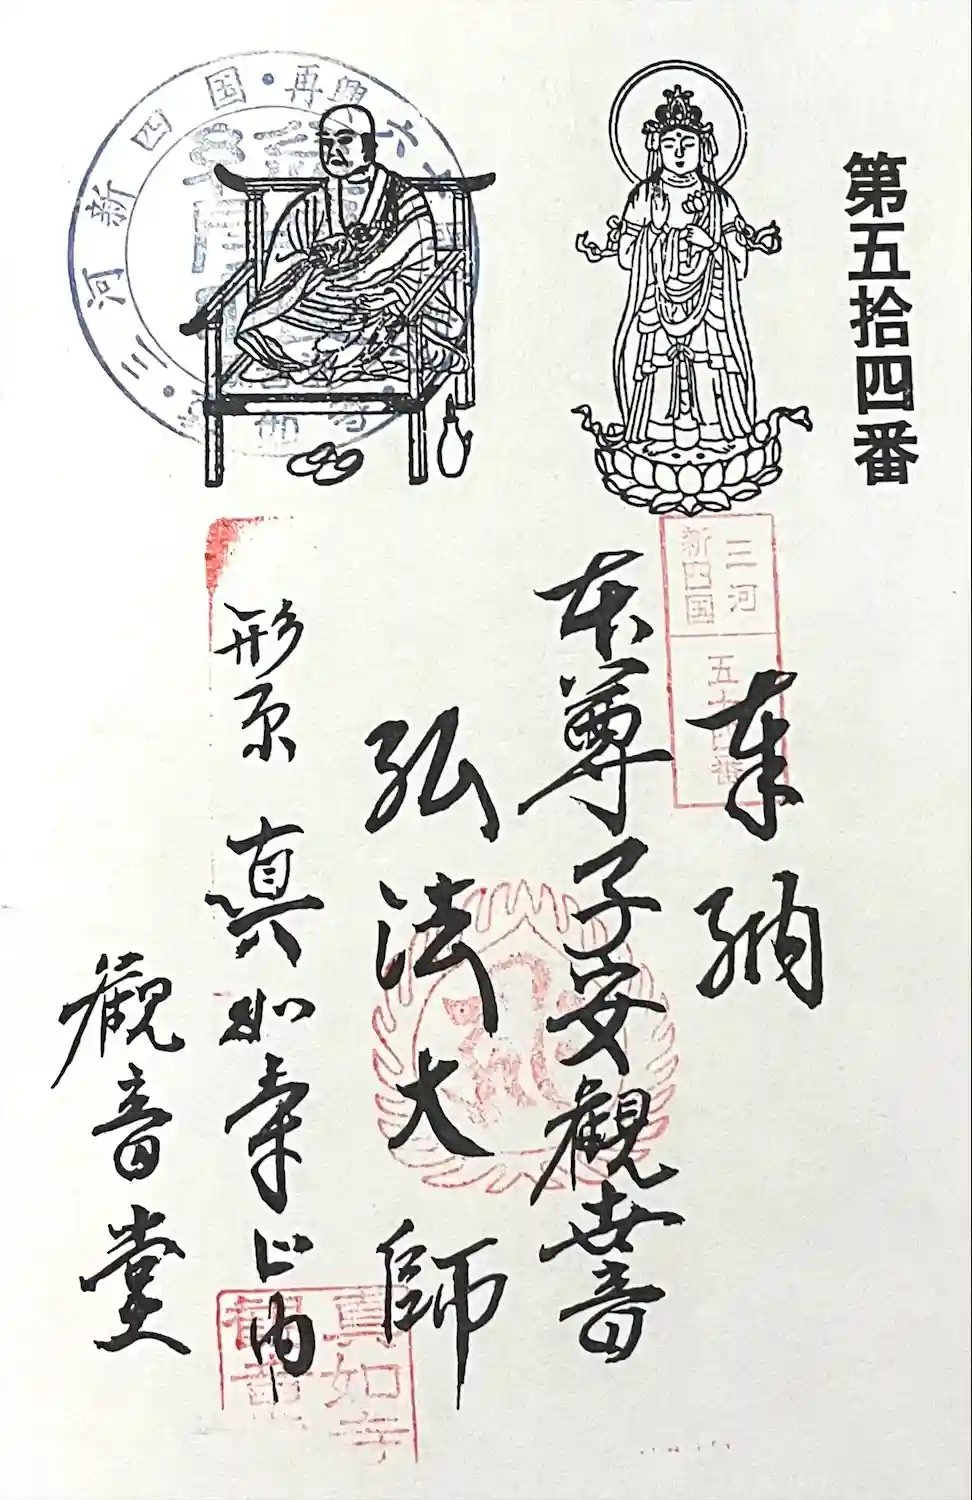 第五拾四番
奉納
本尊子安観世音
弘法大師
形原 真如寺山内
観音堂
三河
新四国
五十四番
三河新四国・再興
真如寺
観音